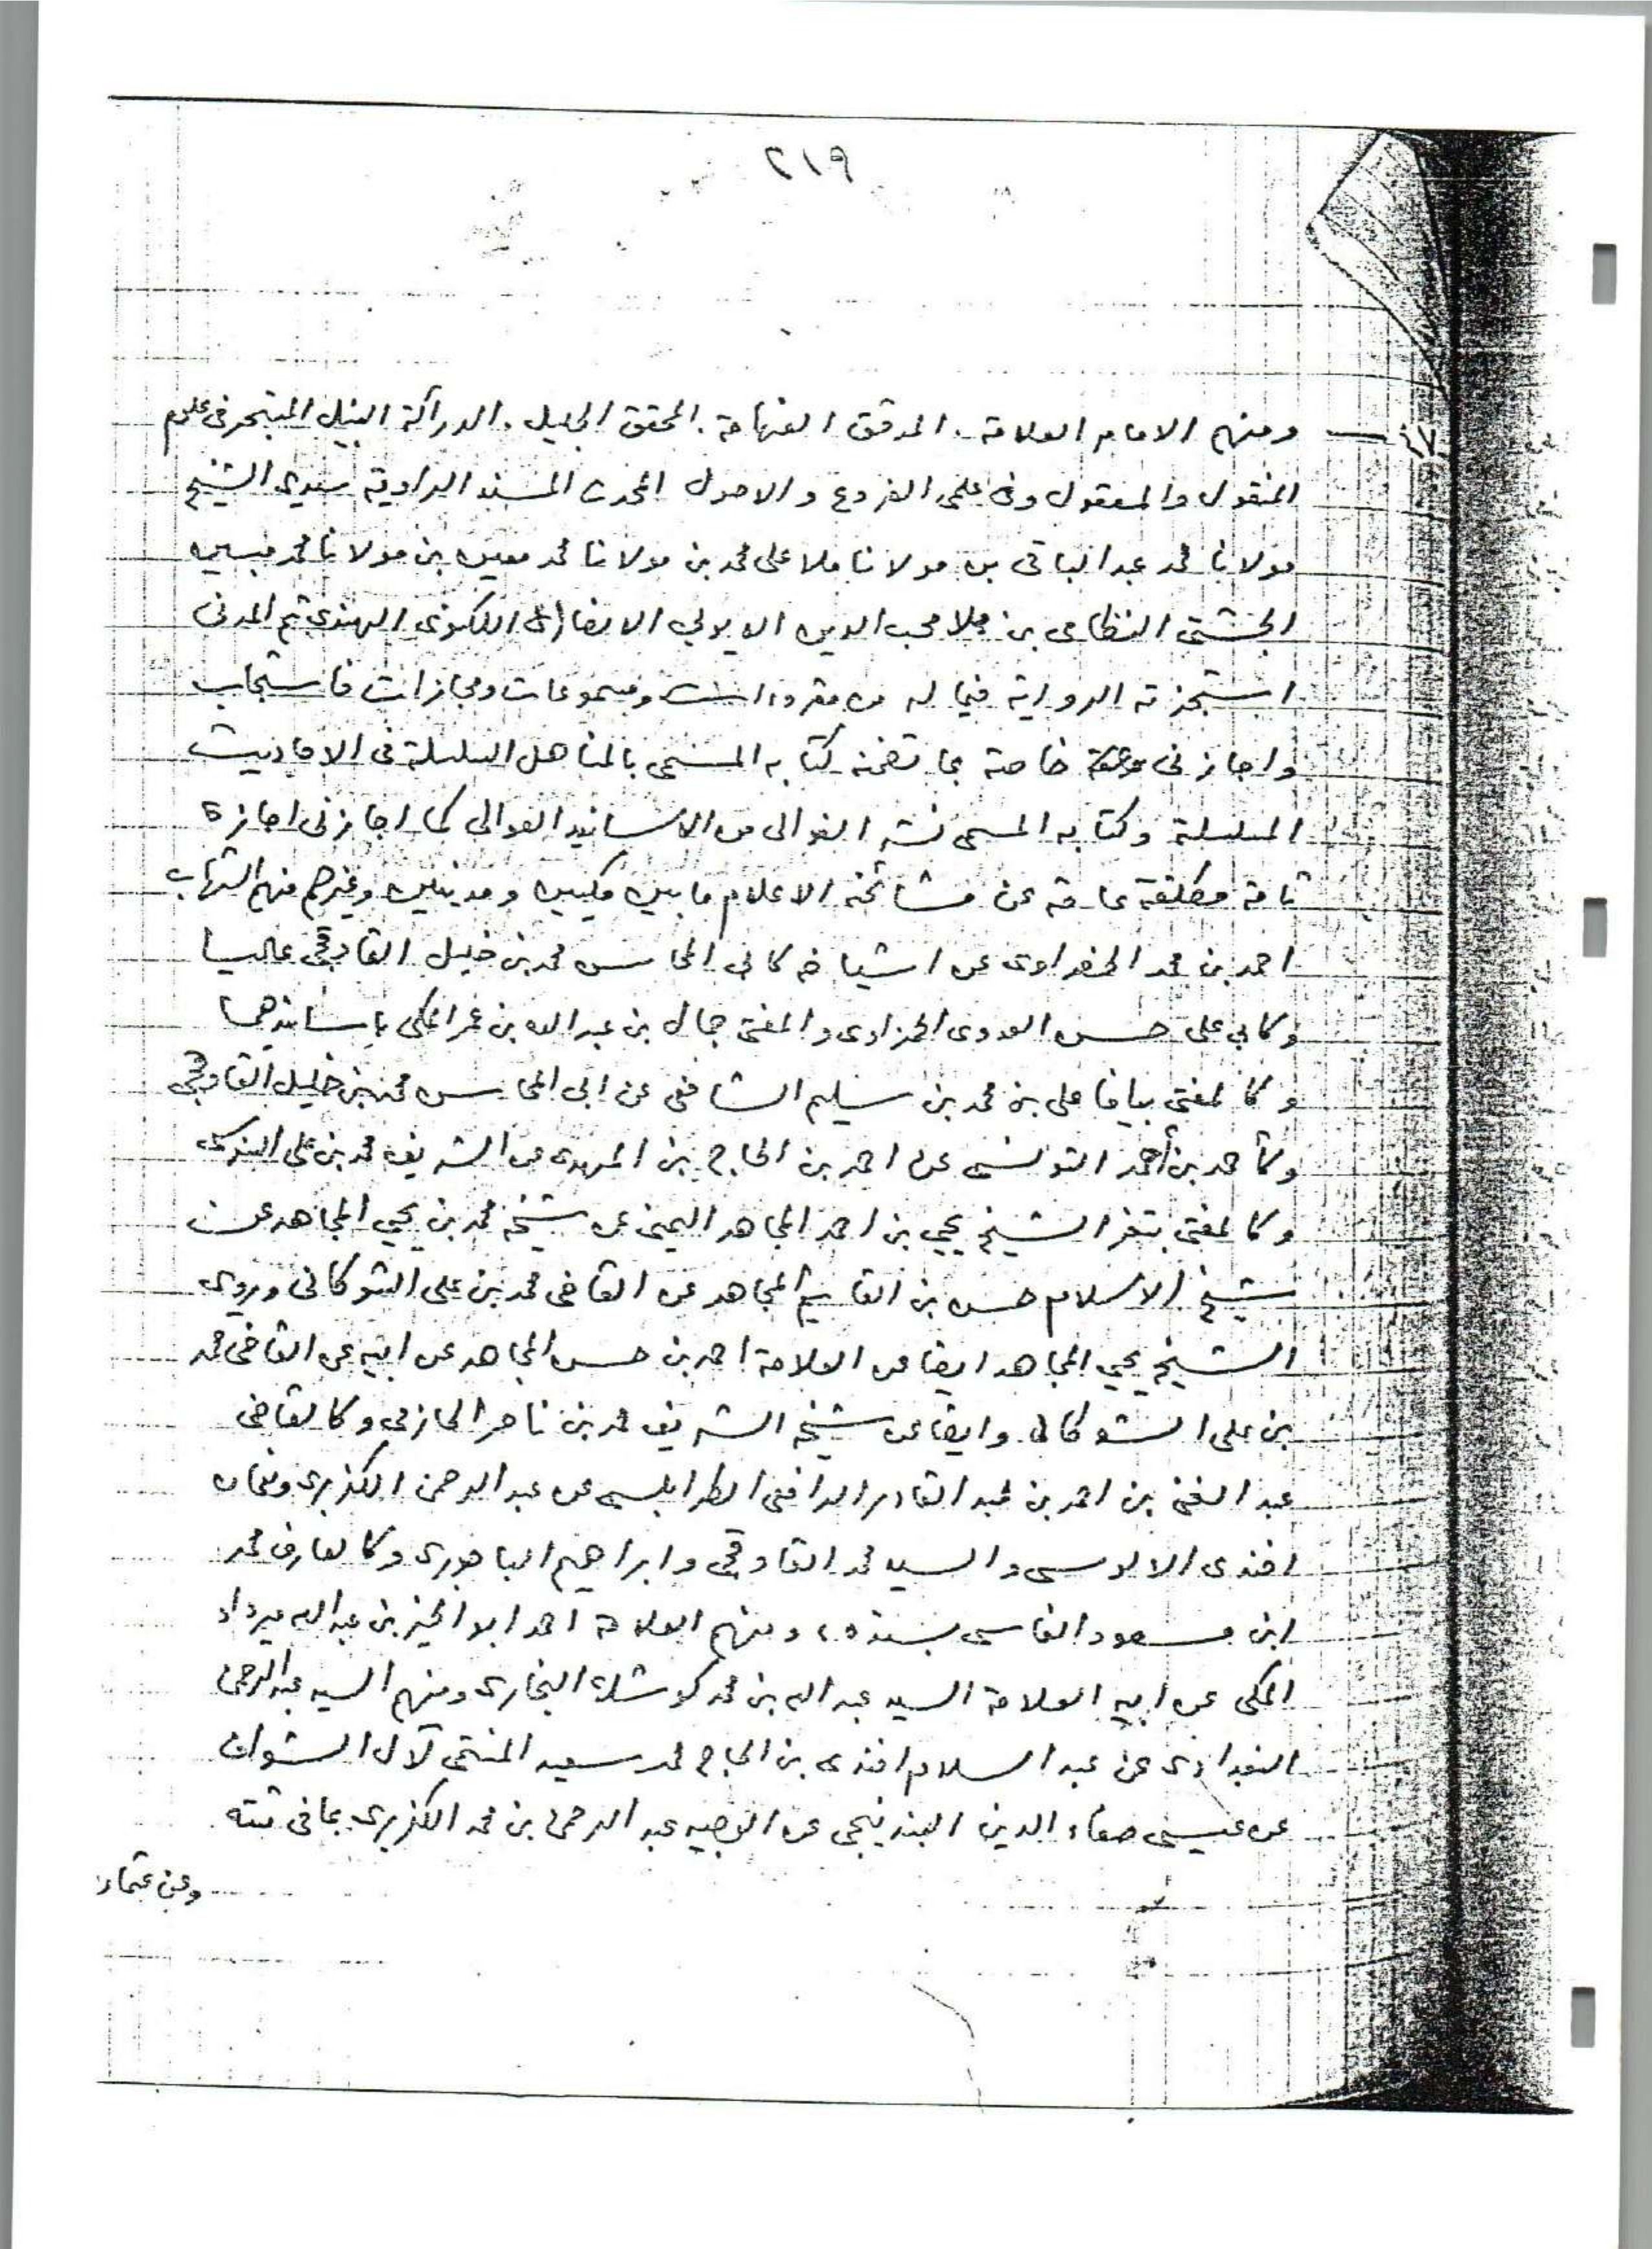 ٢١٩
ومنهم الامام العلامة. المدقق الفهامة. المحقق الجليل. الدراكة النبيل المتبحر فى علوم
المنقول والمعقول وفى علمى الفروع والاصول المحدث المسند الراوية سيدى الشيخ
مولانا محمد عبد الباقى بن مولانا ملا على محمد بن مولانا محمد معين بن مولانا محمد مبين
الجشتى النظامى بن ملا محب الدين الايوبى الانصارى اللكنوى الهندى ثم المدنى
استجزته الرواية فيما له من مقروءات ومسموعات ومجازات فاستجاب
واجازنى خاصة بما تضمنه كتابه المسمى بالمناهل السلسلة فى الاحاديث
المسلسلة وكتابه المسمى نشر الغوالى من الاسانيد العوالى كما اجازنى اجازة
تامة مطلقة عامة عن مشائخه الاعلام ما بين مكيين ومدنيين وغيرهم منهم الشهاب
احمد بن محمد الحضراوى عن اشياخه كابى المحاسن محمد بن خليل القاوقجى عاليا
وكابى على حسن العدوى الحمزاوى والمفتى جمال بن عبد الله بن عمر المكى باسانيدهما
وكالمفتى بيافا على بن محمد بن سليم الشافعى عن ابى المحاسن محمد بن خليل القاوقجى
وكأحمد بن أحمد التونسى عن احمد بن الحاج بن المهدى عن الشريف محمد بن على
وكالمفتى بتعز الشيخ يحيى بن احمد المجاهد اليمنى عن شيخه محمد بن يحيى المجاهد عن
شيخ الاسلام حسن بن القاسم المجاهد عن القاضى محمد بن على الشوكانى ويروى
الشيخ يحيى المجاهد ايضا عن العلامة احمد بن حسن المجاهد عن ابيه عن القاضى محمد
بن على الشوكانى وايضا عن شيخه الشريف محمد بن ناصر الحازمى وكالقاضى
عبد الغنى بن احمد بن عبد القادر الرافعى الطرابلسى عن عبد الرحمن الكزبرى ونعمان
افندى الالوسى والسيد محمد القاوقجى وابراهيم الباجورى وكالعارف محمد
ابن مسعود الفاسى بسنده، ومنهم العلامة احمد ابو الخير بن عبد الله ميرداد
المكى عن ابيه العلامة السيد عبد الله بن محمد كوشك البخارى ومنهم السيد عبد الرحمن
البغدادى عن عبد السلام افندى بن الحاج محمد سعيد المنتمى لآل الشواف
عن عيسى صفاء الدين البندنيجى عن الوجيه عبد الرحمن بن محمد الكزبرى بما فى ثبته
وعن عثمان